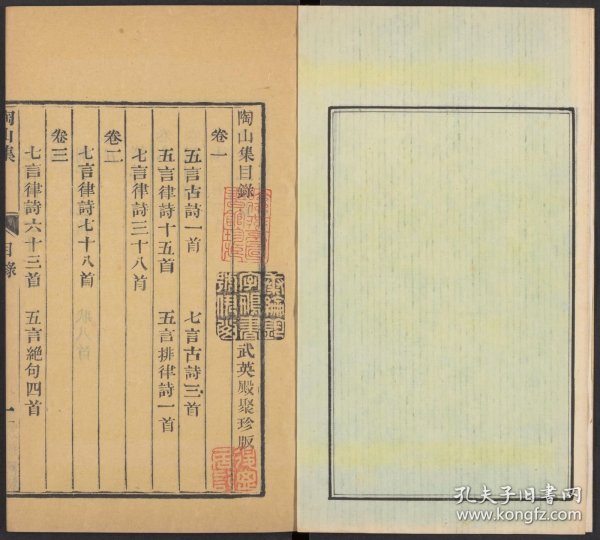 陶山集目錄 武英殿聚珍版
卷一
五言古詩一首 七言古詩三首
五言律詩十五首 五言排律詩一首
七言律詩三十八首
卷二
七言律詩七十八首
卷三
七言律詩六十三首 五言絕句四首
陶山集 目錄 一
孔夫子旧书网
www.kongfz.com